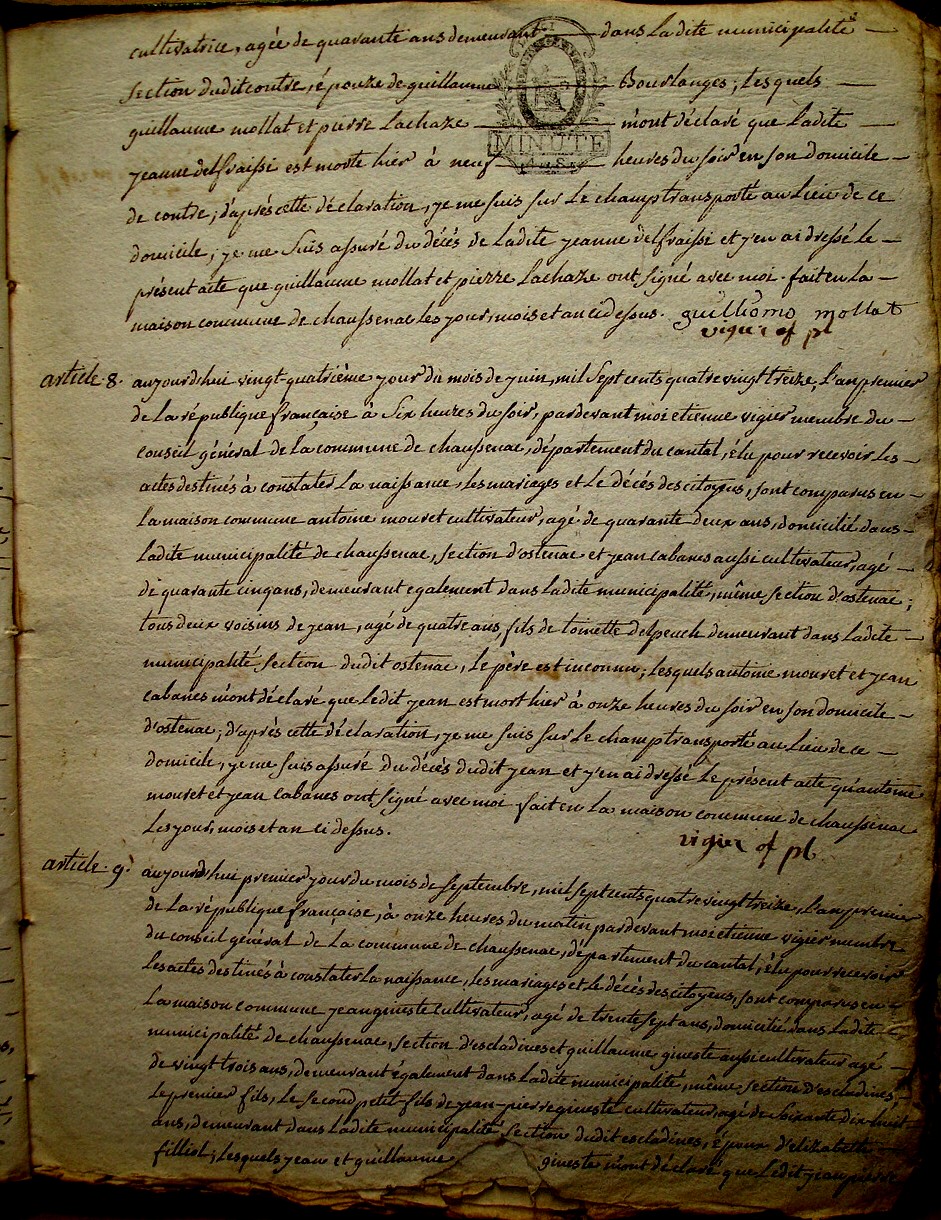 cultivatrice, agée de quarante ans demeurant dans ladite municipalité
section dudit contre, épouze de guillaume Bourlanges; lesquels
guillaume mollat et pierre Lachaze m'ont déclaré que ladite
MINUTE
jeanne delfraissi est morte hier à neuf heures du soir en son domicile
de contre; d'après cette déclaration, je me suis sur le champ transporté au lieu de ce
domicile; je me suis assuré du décés de ladite jeanne delfraissi et j'en ai dressé le
présent acte que guillaume mollat et pierre Lachaze ont signé avec moi. fait en la
maison commune de chaussenac les jour, mois et an ci dessus. guilliomo mollat
vigier of pl
article 8. aujourdhui vingt-quatrième jour du mois de juin, mil sept cents quatre vingt treize, l'an premier
de la république française à six heures du soir, pardevant moi etienne vigier membre du
conseil général de la commune de chaussenac, département du cantal, élu pour recevoir les
actes destinés à constater la naissance, les mariages et le décès des citoyens, sont comparus en
la maison commune antoine mouret cultivateur, agé de quarante deux ans, domicilié dans
ladite municipalité de chaussenac, section d'ostenac et jean cabanes aussi cultivateur, agé
de quarante cinq ans, demeurant egalement dans ladite municipalité, même section d'ostenac;
tous deux voisins de jean, agé de quatre ans, fils de toinette delpeuch demeurant dans ladite
municipalité section dudit ostenac, le père est inconnu; lesquels antoine mouret et jean
cabanes m'ont déclaré que ledit jean est mort hier à onze heures du soir en son domicile
d'ostenac; d'après cette déclaration, je me suis sur le champ transporté au lieu de ce
domicile, je me suis assuré du décés dudit jean et j'en ai dressé le présent acte qu'antoine
mouret et jean cabanes ont signé avec moi fait en la maison commune de chaussenac
les jour, mois et an ci dessus. vigier of pb
article 9. aujourdhui premier jour du mois de septembre, mil sept cents quatre vingt treize, l'an premier
de la république française, à onze heures du matin pardevant moi etienne vigier membre
du conseil général de la commune de chaussenac, département du cantal, élu pour recevoir
les actes destinés à constater la naissance, les mariages et le décés des citoyens, sont comparus en
la maison commune jean gineste cultivateur, agé de trente sept ans, domicilié dans ladite
municipalité de chaussenac, section d'escladines et guillaume gineste aussi cultivateur agé
de vingt trois ans, demeurant également dans ladite municipalité, même section d'escladines,
le premier fils, le second petit-fils de jean-pierre gineste cultivateur, agé de soixante dix huit
ans, demeurant dans ladite municipalité section dudit escladines, époux d'elizabeth
filliol; lesquels jean et guillaume gineste m'ont déclaré que ledit jean pierre